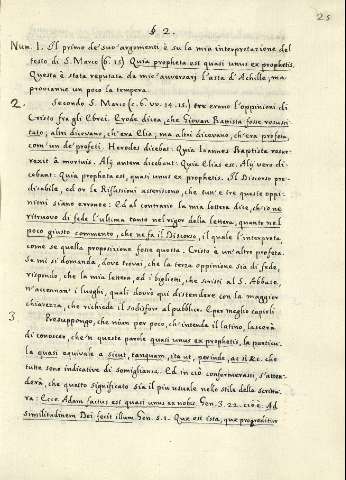 25
§ 2.
Num. 1. Il primo de' suoi argomenti è su la mia interpretazione del
testo di S. Marco (6. 15) Quia propheta est quasi unus ex prophetis.
Questa è stata reputata da miei avversarj l'asta d'Achille; ma
proviamne un poco la tempera.
2. Secondo S. Marco (c. 6. vv. 14. 15.) tre erano l'oppinioni di
Cristo fra gli Ebrei. Erode dicea, che Giovan Battista fosse resusci
tato; altri dicevano, ch'era Elia; ma altri dicevano, ch'era profeta,
com' un de' profeti. Herodes dicebat: Quia Ioannes Baptista resur
rexit à mortuis. Alij autem dicebant: Quia Elias est. Alij vero di
cebant: Quia propheta est, quasi unus ex prophetis. Il Discorso pre
dicabile, ed or le Riflessioni asseriscono, che tutt' e tre queste oppi
nioni siano erronee: Ed al contrario la mia lettera dice, ch'io ne
ritruovo di fede l'ultima tanto nel rigor della lettera, quanto nel
poco giusto commento, che ne fa il Discorso, il quale l'interpreta,
come se quella proposizione fosse questa. Cristo è un' altro profeta.
Se mi si domanda, dove trovai, che la terza oppinione sia di fede,
rispondo, che la mia lettera, ed i biglietti, che scrissi al S. Abbate,
n'accennan' i luoghi, quali dovrò qui distendere con la maggior
chiarezza, che richiede il sodisfar al pubblico. E per meglio capirli
3 Presuppongo, che niun per poco, ch' intenda il latino, lascerà
di conoscer, che 'n queste parole quasi unus ex prophetis, la particu-
la quasi equivale a sicut, tanquam, ita ut, perinde, ac si &c. che
tutte sono indicative di somiglianza. Ed in ciò confermerassi, s'atten-
derà, che questo significato sia il piu usuale nello stile della scrittu-
ra: Ecce Adam factus est quasi unus ex nobis. Gen. 3. 22. cioè: Ad
similitudinem Dei fecit illum Gen. 5. 1. Quæ est ista, quæ progreditur